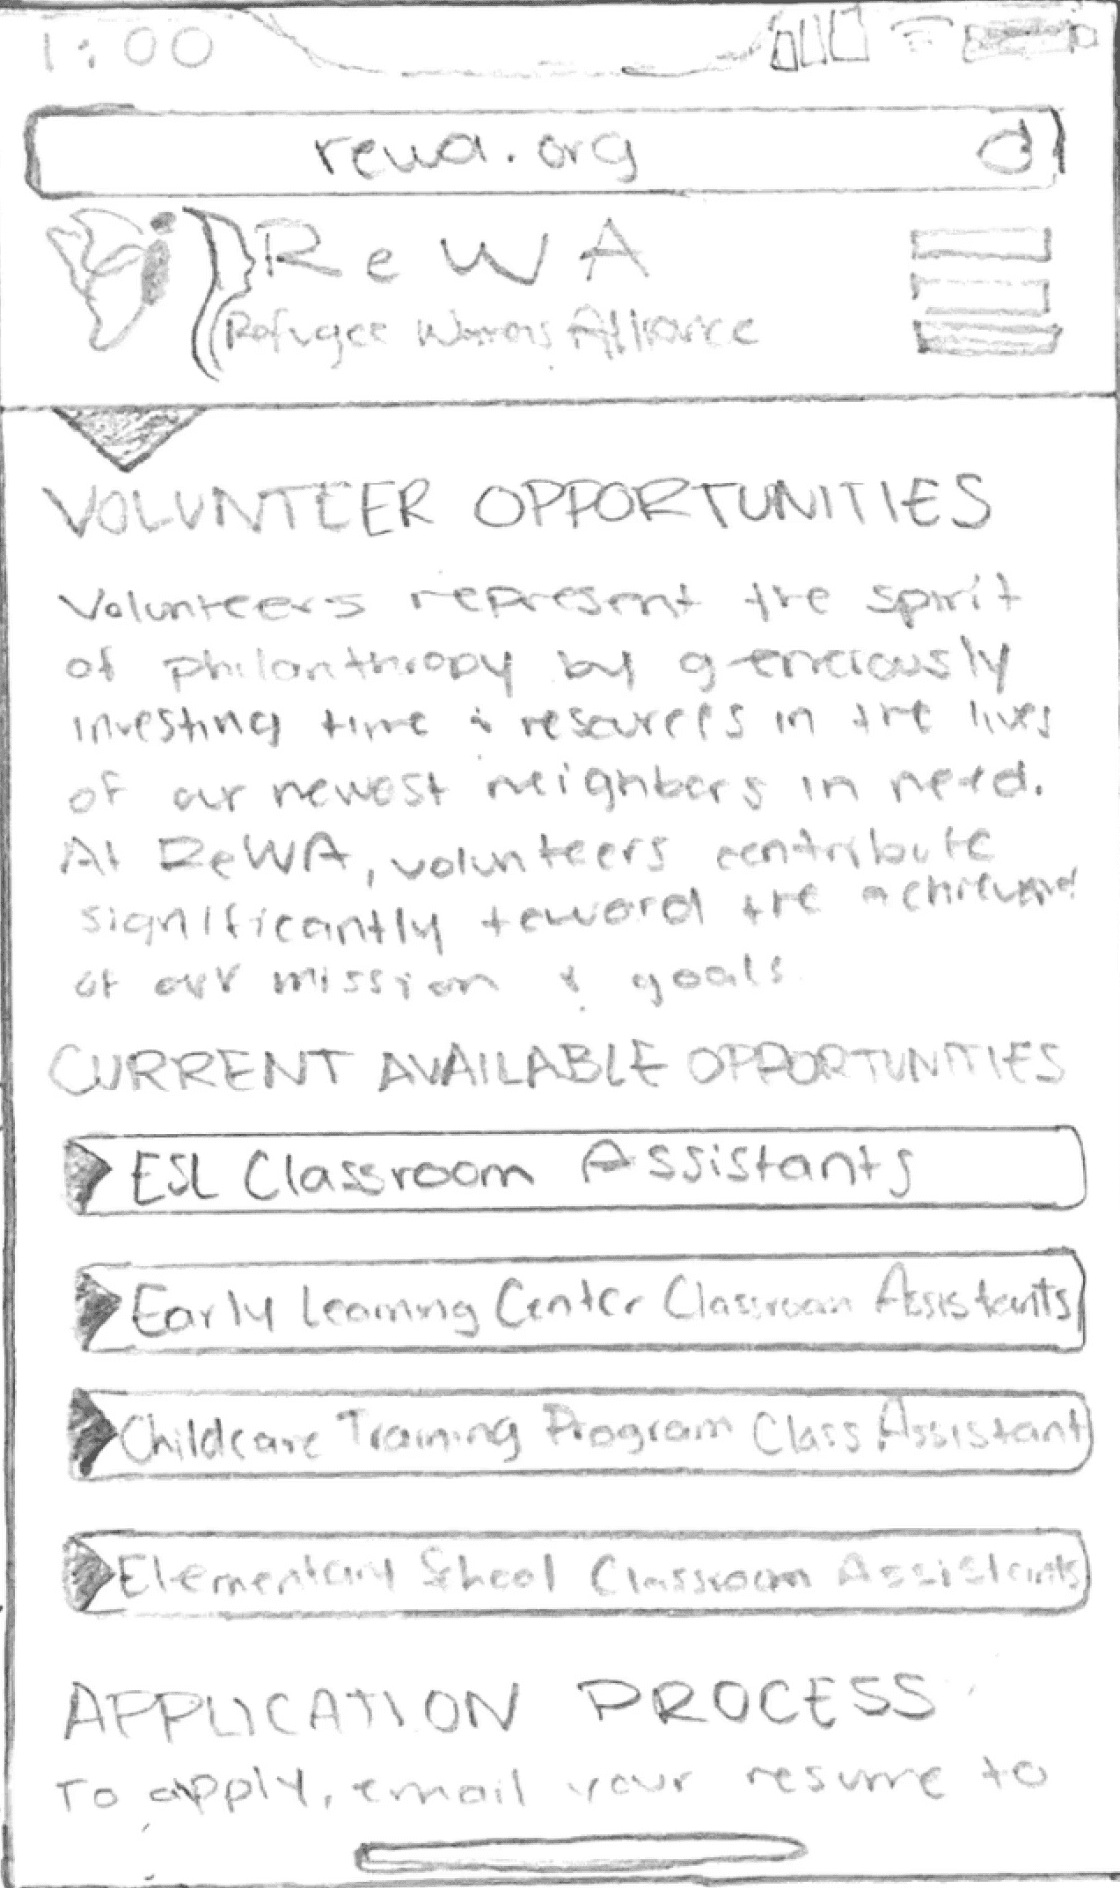 1:00
rewa.org
ReWA
Refugee Womens Alliance
VOLUNTEER OPPORTUNITIES
Volunteers represent the spirit
of philanthropy by generously
investing time & resources in the lives
of our newest neighbors in need.
At ReWA, volunteers contribute
significantly toward the
of our mission & goals
CURRENT AVAILABLE OPPORTUNITIES
ESL Classroom Assistants
Early Learning Center Classroom Assistants
Childcare Training Program Class Assistant
Elementary School Classroom Assistants
APPLICATION PROCESS
To apply, email your resume to